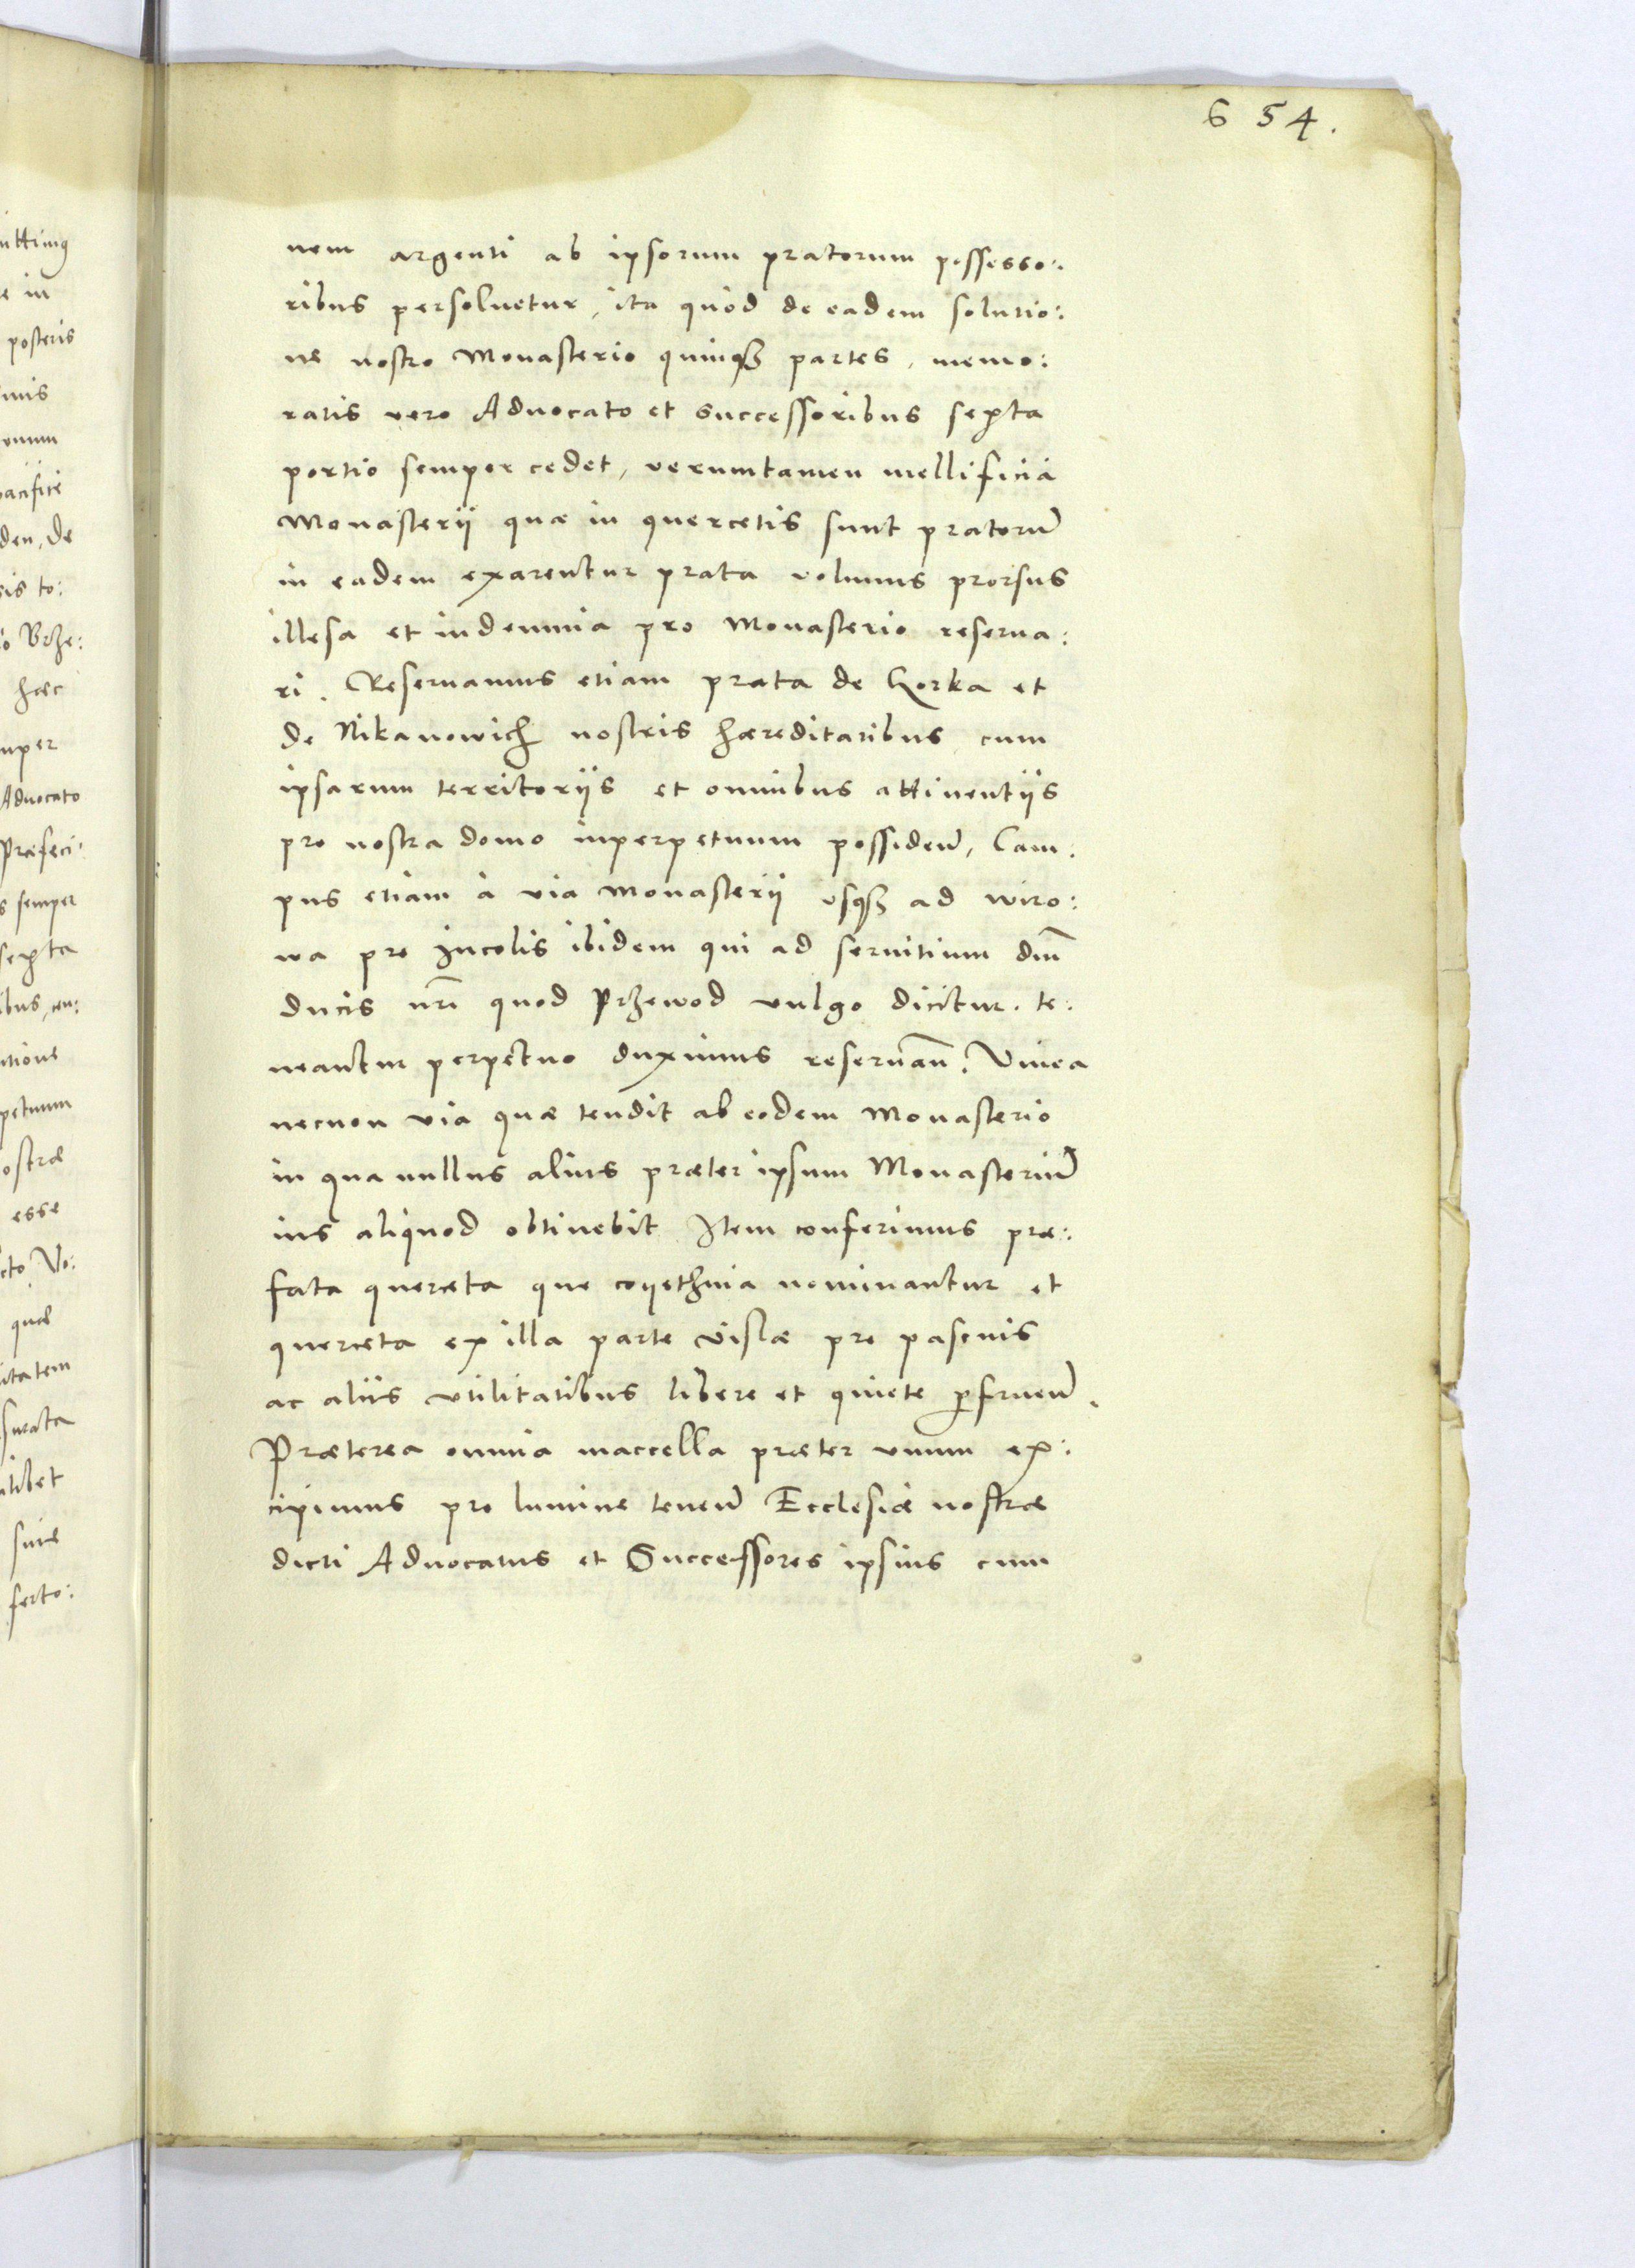 654.
nem argenti ab ipsorum pratorum possesso:
ribus persoluetur, ita quòd de eadem solutio:
ne nostro Monasterio quinqȝ partes, memo:
ratis vero Aduocato et successoribus sexta
portio semper cedet, verumtamen mellificia
Monasterij quæ in quercetis sunt pratorũ
in eadem exarentur prata volumus prorsus
illesa et indemnia pro Monasterio reserua:
ri. Reseruamus etiam prata de Gorka et
de Nikanowich nostris hæreditatibus cum
ipsarum territorijs et omnibus attinentijs
pro nostra domo inperpetuum possideñ, Cam:
pus etiam à via Monasterij vsqȝ ad wiro:
wa pro Incolis ibidem qui ad seruitium dnĩ
ducis nrĩ quod Przewod vulgo dicitur. te:
neantur perpetuo duximus reseruañ. Vinea
necnon via quæ tendit ab eodem Monasterio
in qua nullus alius præter ipsum Monasteriũ
ius aliquod obtinebit Item conferimus præ:
fata querceta que coyethnia nominantur et
querceta ex illa parte vislæ pro pascuis
ac aliis vtilitatibus libere et quiete perfrueñ.
Præterea omnia maccella præter vnum ex:
cipimus pro lumine teneñ Ecclesiæ nostræ
dicti Aduocatus et Successores ipsius cum
posteris
Brze:
hæc
Aduocato
Præfeci:
semper
sexta
esse
quæ
ferto: